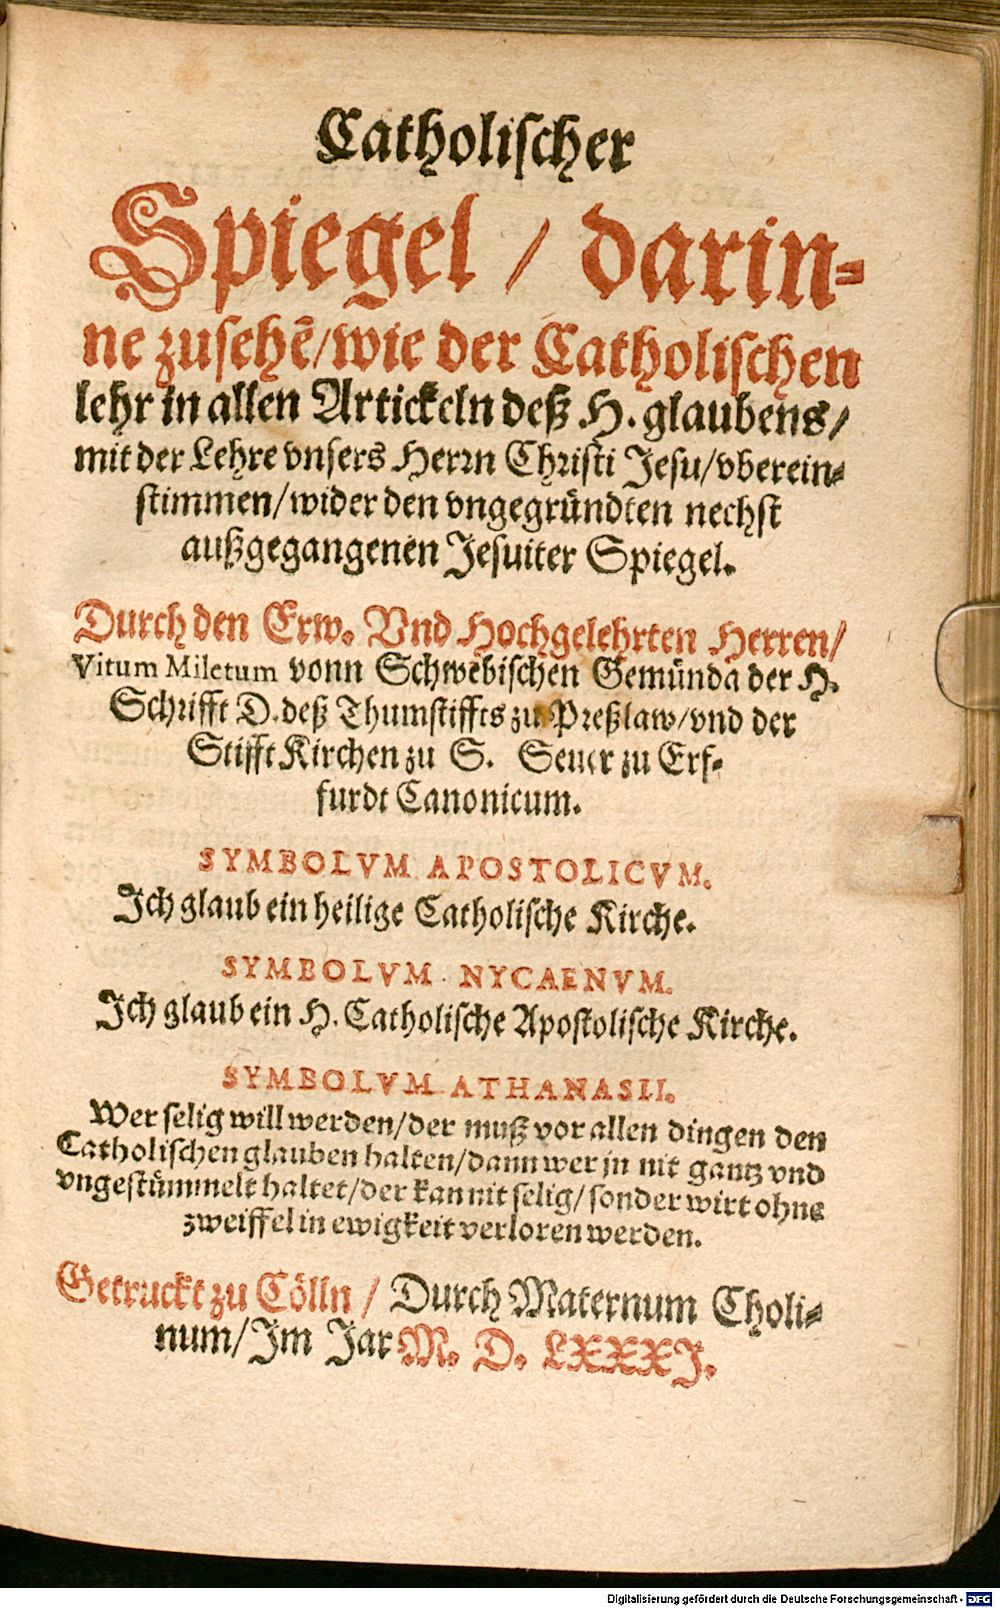 Catholischer
Spiegel / darin-
ne zusehē/wie der Catholischen
lehr in allen Artickeln deß H. glaubens/
mit der Lehre vnsers Herrn Christi Jesu/vberein-
stimmen/wider den vngegründten nechst
außgegangenen Jesuiter Spiegel.
Durch den Erw. Vnd Hochgelehrten Herren/
Vitum Miletum vonn Schwebischen Gemünda der H.
Schrifft D. deß Thumstiffts zu Preßlaw/vnd der
Stifft Kirchen zu S. Seuer zu Erf-
furdt Canonicum.
SYMBOLVM APOSTOLICVM.
Ich glaub ein heilige Catholische Kirche.
SYMBOLVM NYCAENVM.
Ich glaub ein H. Catholische Apostolische Kirche.
SYMBOLVM ATHANASII.
Wer selig will werden/der muß vor allen dingen den
Catholischen glauben halten/dann wer jn nit gantz vnd
vngestümmelt haltet/der kan nit selig/sonder wirt ohne
zweiffel in ewigkeit verloren werden.
Getruckt zu Cölln / Durch Maternum Choli-
num/Im Jar M. D. LXXXI.
Digitalisierung gefördert durch die Deutsche Forschungsgemeinschaft - DFG